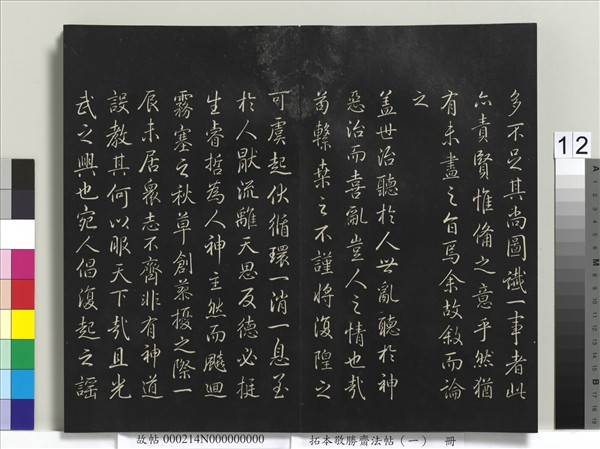 多不足其尚圖讖一事者此
亦責賢惟備之意乎然猶
有未盡之旨焉余故敘而論
之
盖世治聽於人世亂聽於神
惡治而喜亂豈人之情也哉
苟繫桑之不謹將復隍之
可虞起伏循環一消一息至
於人厭流離天思反德必挺
生睿哲為人神主然而飈迴
霧塞之秋草創擾之際一
辰未居衆志不齊非有神道
設教其何以服天下哉且光
武之興也宛人倡復起之謡
12
A
M
B
故帖 000214N000000000 拓本敬勝齋法帖（一） 冊